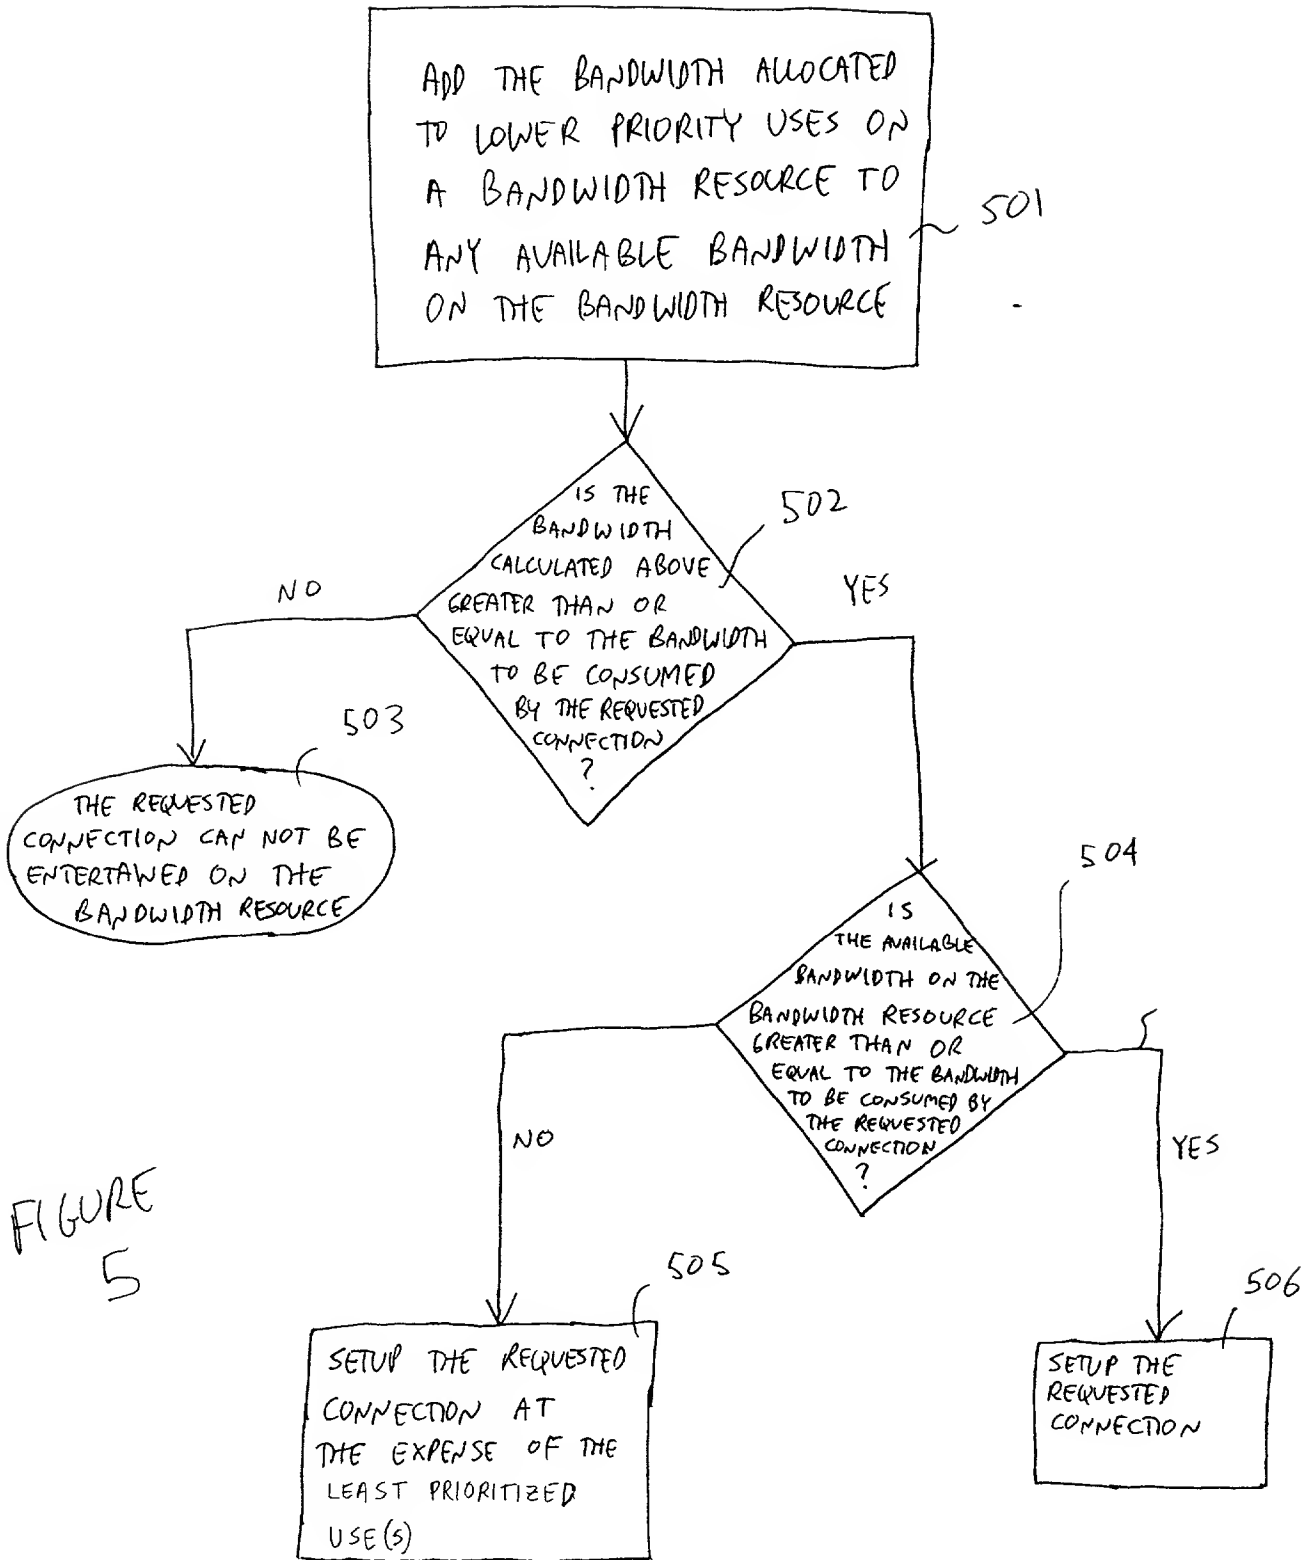 ADD THE BANDWIDTH ALLOCATED
TO LOWER PRIORITY USES ON
A BANDWIDTH RESOURCE TO
ANY AVAILABLE BANDWIDTH
ON THE BANDWIDTH RESOURCE
501
IS THE
BANDWIDTH
CALCULATED ABOVE
GREATER THAN OR
EQUAL TO THE BANDWIDTH
TO BE CONSUMED
BY THE REQUESTED
CONNECTION
?
502
NO
YES
503
THE REQUESTED
CONNECTION CAN NOT BE
ENTERTAINED ON THE
BANDWIDTH RESOURCE
504
IS
THE AVAILABLE
BANDWIDTH ON THE
BANDWIDTH RESOURCE
GREATER THAN OR
EQUAL TO THE BANDWIDTH
TO BE CONSUMED BY
THE REQUESTED
CONNECTION
?
NO
YES
FIGURE
5
505
SETUP THE REQUESTED
CONNECTION AT
THE EXPENSE OF THE
LEAST PRIORITIZED
USE(S)
506
SETUP THE
REQUESTED
CONNECTION